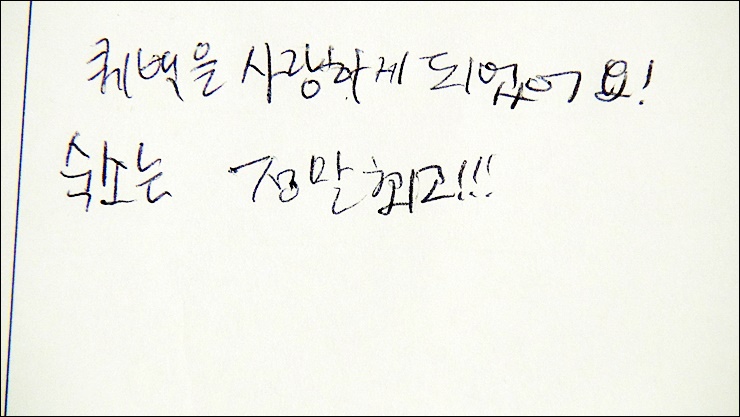 퀘벡을 사랑하게 되었어요!
숙소는 정말 최고!!!